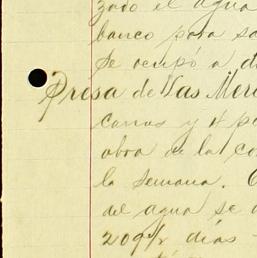 zado el agua
banco para sa
se ocupó a d
Presa de Las Mer
carros y 8 p
obra de la co
la semana. C
del agua se a
209½ días